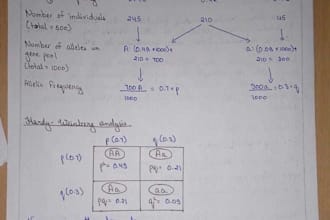 Number of individuals 245 210 45
(total = 500)
Number of alleles in A: (0.49 × 1000) + a: (0.09 × 1000) +
gene pool 210 = 700 210 = 300
(total = 1000)
Allelic Frequency 700A = 0.7 = p 300a = 0.3 = q
1000 1000
Hardy - Weinberg analysis
p (0.7) q (0.3)
p (0.7) AA Aa
p² = 0.49 pq = 0.21
q (0.3) Aa aa
pq = 0.21 q² = 0.09